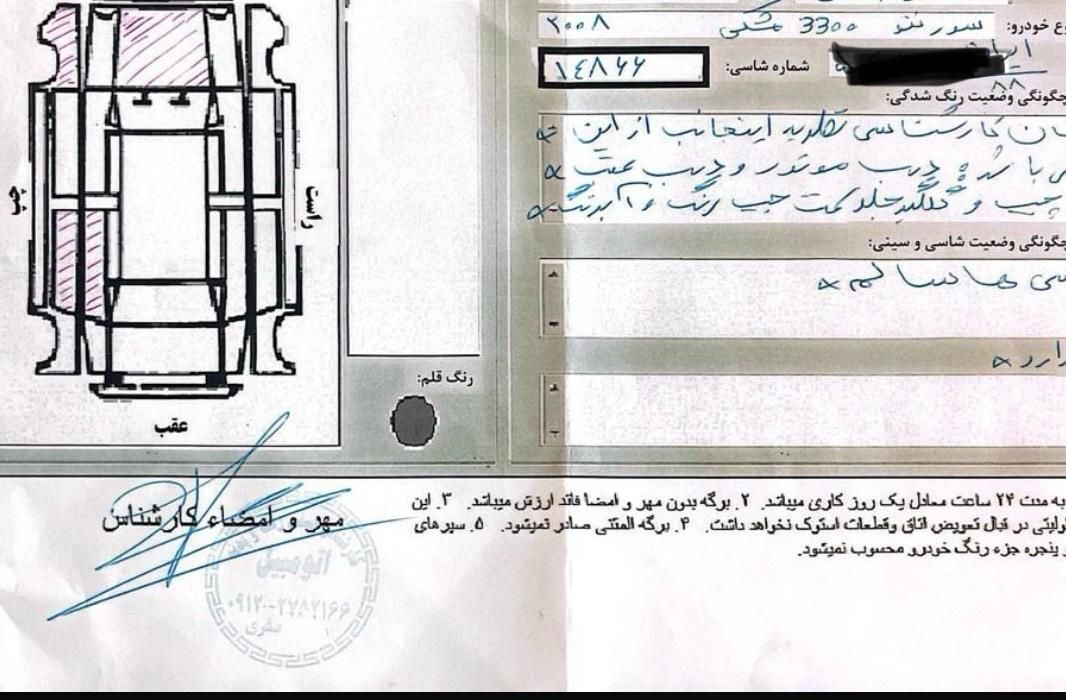 وع خودرو: سورنتو 3300 مشکی ۲۰۰۸
ایران
۸۸
شماره شاسی: ۱۴۸۶۶
چگونگی وضعیت رنگ شدگی:
کارشناسی گردید اینجانب از این
با شد درب موتور و درب عقب
چپ و گلگیر جلو سمت چپ رنگ
چگونگی وضعیت شاسی و سینی:
سی ها سالم
دارد
رنگ قلم:
چپ
راست
عقب
مهر و امضاء کارشناس
اتومبیل
۰۹۱۲-۲۷۸۲۱۶۶
به مدت ۲۴ ساعت معادل یک روز کاری میباشد. ۲. برگه بدون مهر و امضا فاقد ارزش میباشد. ۳. این
ولیتی در قبال تعویض اتاق وقطعات استوک نخواهد داشت. ۴. برگه المثنی صادر نمیشود. ۵. سپرهای
و پنجره جزء رنگ خودرو محسوب نمیشود.